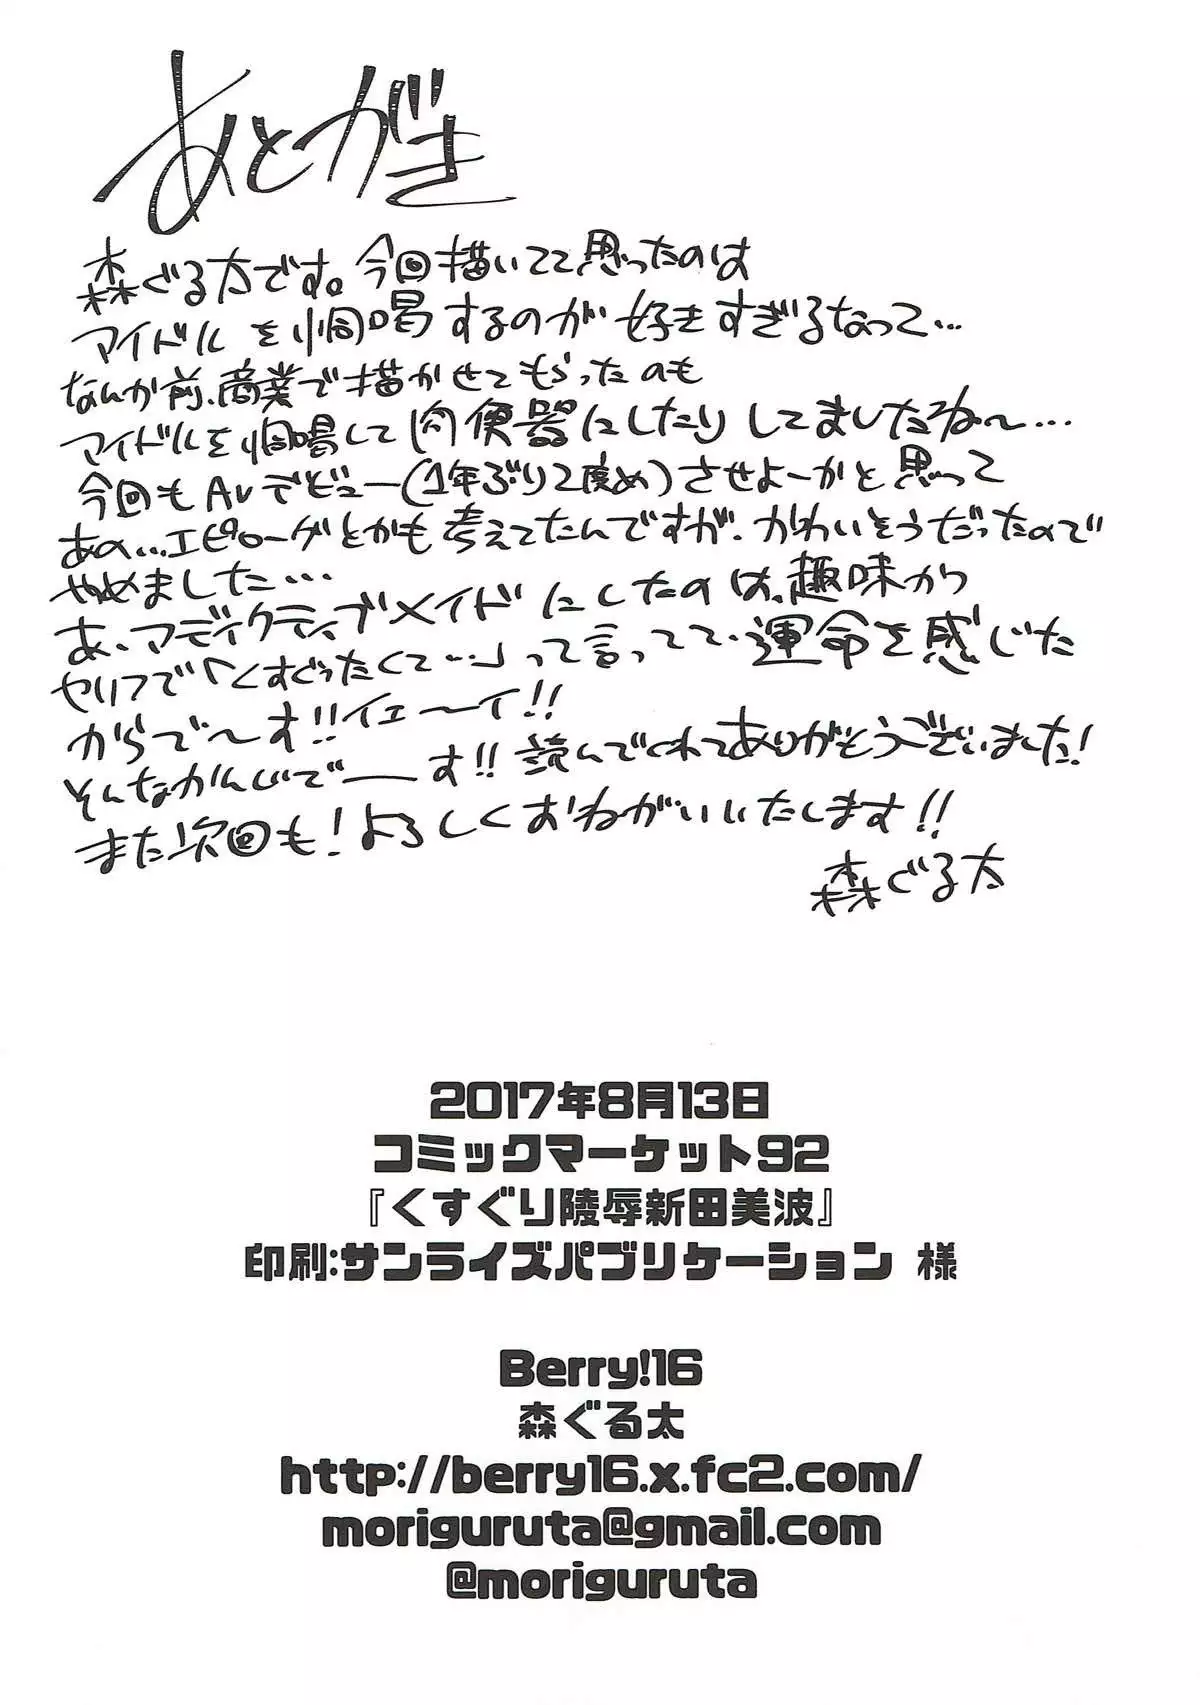 あとがき
森ぐる太です。今回描いてて思ったのは
アイドルを恫喝するのが好きすぎるなって…
なんか前、商業で描かせてもらったのも
アイドルを恫喝して肉便器にしたりしてましたよね〜…
今回もAVデビュー(1年ぶり2度め)させよーかと思って
あの…エピローグとかも考えてたんですが、かわいそうだったので
やめました…
あ、アディクティブメイドにしたのは、趣味から
セリフで「くすぐったくて…」って言ってて、運命を感じた
からで〜す!!イェ〜イ!!
そんなかんじでーす!!読んでくれてありがとうございました!
また次回も!よろしくおねがいいたします!!
森ぐる太
2017年8月13日
コミックマーケット92
『くすぐり陵辱新田美波』
印刷:サンライズパブリケーション 様
Berry!16
森ぐる太
http://berry16.x.fc2.com/
moriguruta@gmail.com
@moriguruta